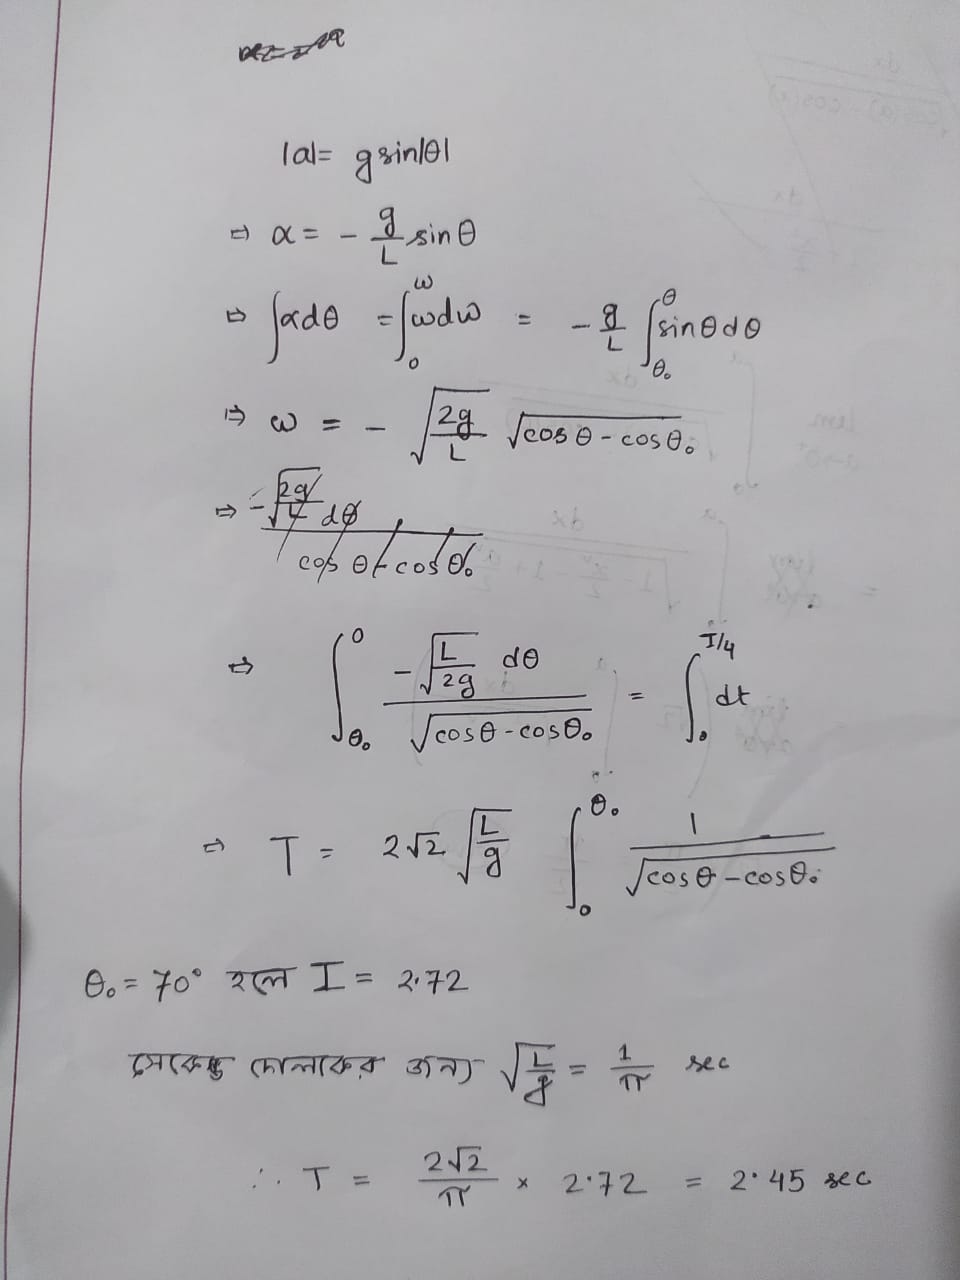 |a| = g sin|θ|
⇒ α = - g/L sin θ
⇒ ∫αdθ = ∫₀^ω ωdω = - g/L ∫_θ₀^θ sin θ dθ
⇒ ω = - √(2g/L) √(cos θ - cos θ₀)
⇒ ∫_θ₀^0 -√(L/2g) dθ / √(cos θ - cos θ₀) = ∫₀^T/4 dt
⇒ T = 2√2 √(L/g) ∫₀^θ₀ 1/√(cos θ - cos θ₀)
θ₀ = 70° হলে I = 2.72
সেকেন্ড দোলকের জন্য √(L/g) = 1/π sec
∴ T = 2√2/π × 2.72 = 2.45 sec